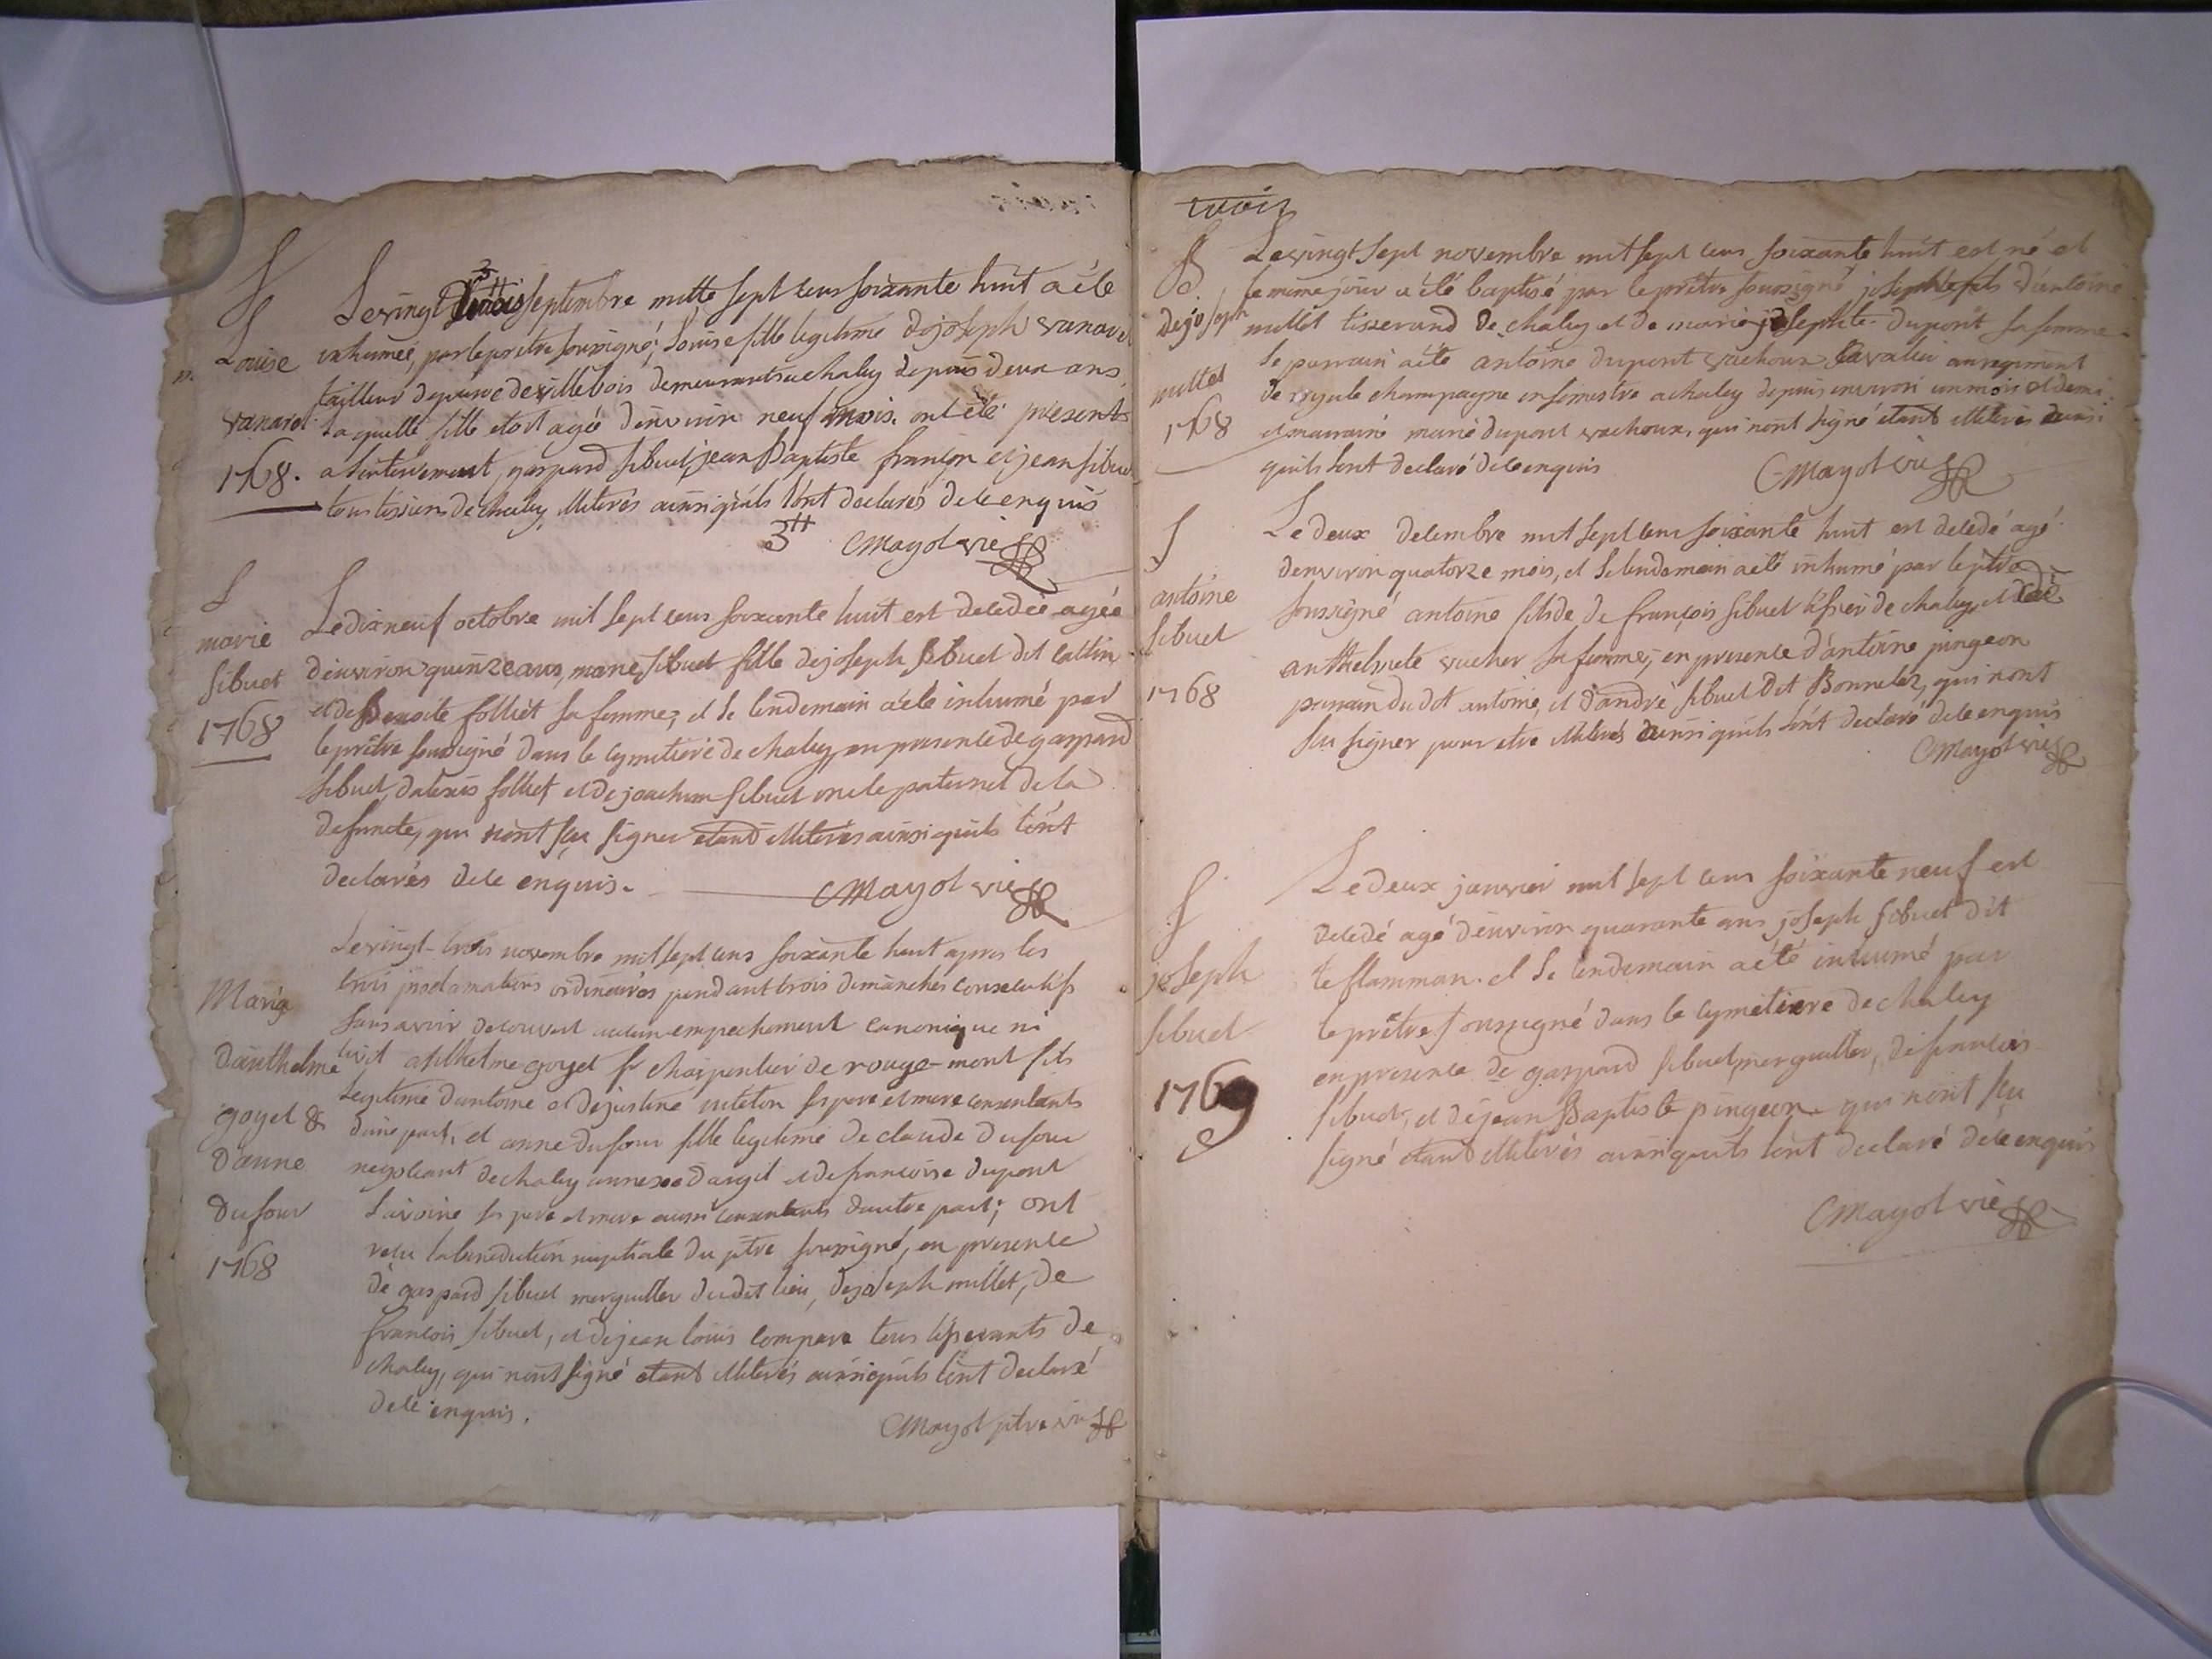 S
Louise
vanarel
1768.
Le vingt trois septembre mille sept cens soixante huit a été
inhumée, par le pretre soussigné, Louise fille legitime de joseph vanarel
tailleur de pierre de villebois demeurant a chaley depuis deux ans
laquelle fille etoit agée d'environ neuf mois. ont été presents
a l'enterrement, gaspard sibuet, jean Baptiste françon et jean sibuet
tous tissiers de chaley, illiterés ainsi qu'ils l'ont declarés de ce enquis
3tt Mayol vic
S
marie
sibuet
1768
Le dix neuf octobre mil sept cens soixante huit est decedée agée
d'environ quinze ans, marie sibuet fille de joseph sibuet dit cattin
et de Benoite folliet sa femme, et le lendemain a été inhumé par
le prêtre soussigné dans le cymetiere de chaley en presence de gaspard
sibuet, d'alexis folliet et de joachim sibuet oncle paternel de la
defuncte, qui n'ont sçu signer etant illiterés ainsi qu'ils l'ont
declarés de ce enquis. Mayol vic
Mariage
d'anthelme
goyet &
d'anne
dufour
1768
Le vingt-trois novembre mil sept cens soixante huit apres les
trois proclamations ordinaires pendant trois dimanches consecutifs
sans avoir decouvert aucun empechement canonique ni
civil anthelme goyet charpentier de rouge-mont fils
legitime d'antoine et de justine ses pere et mere consentants
d'une part, et anne dufour fille legitime de claude dufour
negotiant de chaley annexe d'argil et de françoise dupont
savoine ses pere et mere aussi consentants d'autre part; ont
reçu la benediction nuptiale du ptre soussigné, en presence
de gaspard sibuet marguillier dudit lieu, de joseph millet, de
françois sibuet, et de jean louis compere tous tisserants de
chaley, qui n'ont signé etant illiterés ainsi qu'ils l'ont declaré
de ce enquis.
Mayol ptre vic
trois
B
de joseph
millet
1768
Le vingt sept novembre mil sept cens soixante huit est né et
le meme jour a été baptisé par le prêtre soussigné joseph fils d'antoine
millet tisserand de chaley et de marie josephte dupont sa femme
le parrain a été antoine dupont vachoux cavalier au regiment
de royale champagne en semestre a chaley depuis environ un mois et demi;
et marraine marie dupont vachoux, qui n'ont signé etant illiterés ainsi
qu'ils l'ont declaré de ce enquis
Mayol vic
S
antoine
sibuet
1768
Le deux decembre mil sept cens soixante huit est decedé agé
d'environ quatorze mois, et le lendemain a été inhumé par le ptre
soussigné antoine fils de de françois sibuet tissier de chaley, et de
anthelmete vucher sa femme, en presence d'antoine pingeon
parrain dudit antoine, et d'andré sibuet dit Bonnelez, qui n'ont
sçu signer pour etre illiterés ainsi qu'ils l'ont declaré de ce enquis
Mayol vic
S
joseph
sibuet
1769
Le deux janvier mil sept cens soixante neuf est
decedé agé d'environ quarante ans joseph sibuet dit
le flamman. et le lendemain a été inhumé par
le prêtre soussigné dans le cymetiere de chaley
en presence de gaspard sibuet, marguillier, de françois
sibuet, et de jean Baptiste pingeon qui n'ont sçu
signé etant illiterés ainsi qu'ils l'ont declaré de ce enquis
Mayol vic